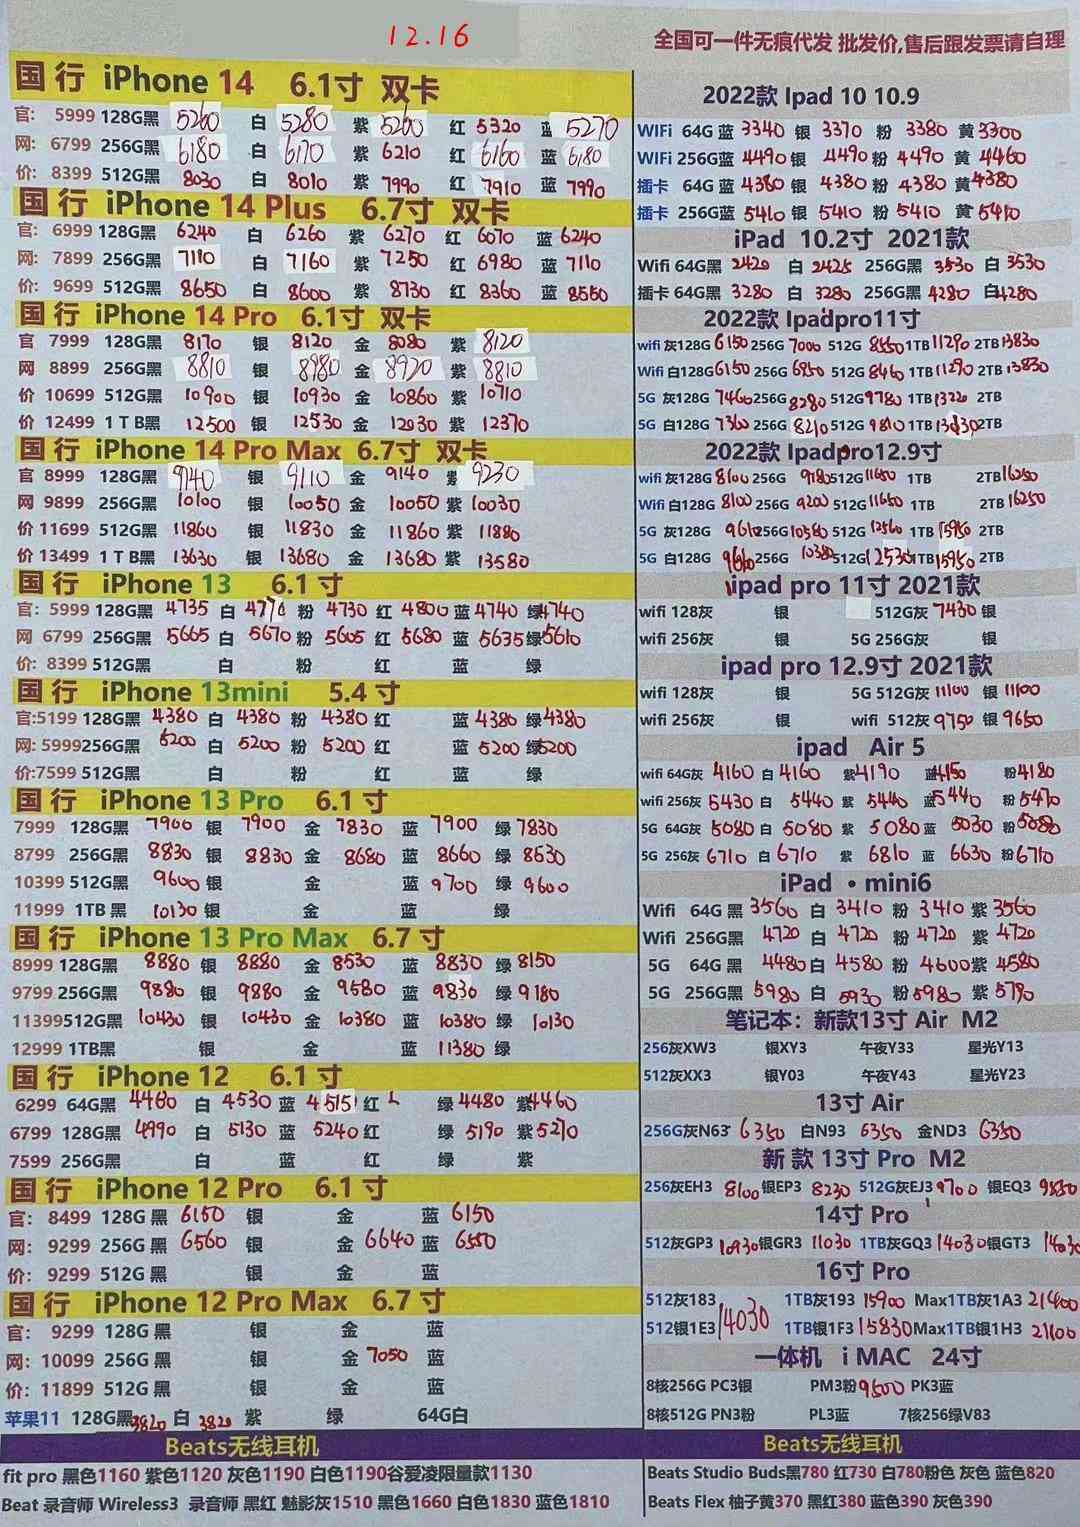 12.16
全国可一件无痕代发 批发价,售后跟发票请自理
国 行 iPhone 14 6.1寸 双卡
官: 5999 128G黑 5260 白 5280 紫 5260 红 5320 蓝 5270
网: 6799 256G黑 6180 白 6170 紫 6210 红 6160 蓝 6180
价: 8399 512G黑 8030 白 8010 紫 7990 红 7910 蓝 7990
国 行 iPhone 14 Plus 6.7寸 双卡
官: 6999 128G黑 6240 白 6260 紫 6270 红 6070 蓝 6240
网: 7899 256G黑 7110 白 7160 紫 7250 红 6980 蓝 7110
价: 9699 512G黑 8650 白 8600 紫 8730 红 8360 蓝 8550
国 行 iPhone 14 Pro 6.1寸 双卡
官 7999 128G黑 8170 银 8120 金 8080 紫 8120
网 8899 256G黑 8810 银 8980 金 8920 紫 8810
价 10699 512G黑 10900 银 10930 金 10860 紫 10710
价 12499 1 T B黑 12500 银 12530 金 12030 紫 12370
国 行 iPhone 14 Pro Max 6.7寸 双卡
官 8999 128G黑 9140 银 9110 金 9140 紫 9230
网 9899 256G黑 10100 银 10050 金 10050 紫 10030
价 11699 512G黑 11860 银 11830 金 11860 紫 11880
价 13499 1 T B黑 13630 银 13680 金 13680 紫 13580
国 行 iPhone 13 6.1 寸
官: 5999 128G黑 4735 白 4770 粉 4730 红 4800 蓝 4740 绿 4740
网 6799 256G黑 5665 白 5670 粉 5605 红 5680 蓝 5635 绿 5610
价: 8399 512G黑 白 粉 红 蓝 绿
国 行 iPhone 13mini 5.4 寸
官:5199 128G黑 4380 白 4380 粉 4380 红 蓝 4380 绿 4380
网: 5999256G黑 5200 白 5200 粉 5200 红 蓝 5200 绿 5200
价:7599 512G黑 白 粉 红 蓝 绿
国 行 iPhone 13 Pro 6.1 寸
7999 128G黑 7900 银 7900 金 7830 蓝 7900 绿 7830
8799 256G黑 8830 银 8830 金 8680 蓝 8660 绿 8530
10399 512G黑 9600 银 金 蓝 9700 绿 9600
11999 1TB 黑 10130 银 金 蓝 绿
国 行 iPhone 13 Pro Max 6.7 寸
8999 128G黑 8880 银 8880 金 8530 蓝 8830 绿 8150
9799 256G黑 9880 银 9880 金 9580 蓝 9830 绿 9180
11399512G黑 10430 银 10430 金 10380 蓝 10380 绿 10130
12999 1TB黑 银 金 蓝 11380 绿
国 行 iPhone 12 6.1 寸
6299 64G黑 4460 白 4530 蓝 4515 红 绿 4480 紫 4460
6799 128G黑 4990 白 5130 蓝 5240 红 绿 5190 紫 5270
7599 256G黑 白 蓝 红 绿 紫
国 行 iPhone 12 Pro 6.1 寸
官: 8499 128G 黑 6150 银 金 蓝 6150
网: 9299 256G 黑 6560 银 金 6640 蓝 6550
价: 9299 512G 黑 银 金 蓝
国 行 iPhone 12 Pro Max 6.7 寸
官: 9299 128G 黑 银 金 蓝
网: 10099 256G 黑 银 金 7050 蓝
价: 11899 512G 黑 银 金 蓝
苹果11 128G黑 3820 白 3820 紫 绿 64G白
2022款 Ipad 10 10.9
WIFi 64G 蓝 3340 银 3370 粉 3380 黄 3300
WIFi 256G蓝 4490 银 4490 粉 4490 黄 4460
插卡 64G 蓝 4380 银 4380 粉 4380 黄 4380
插卡 256G蓝 5410 银 5410 粉 5410 黄 5410
iPad 10.2寸 2021款
Wifi 64G黑 2420 白 2425 256G黑 3530 白 3530
插卡 64G黑 3280 白 3280 256G黑 4280 白 4280
2022款 Ipadpro11寸
wifi 灰128G 6150 256G 7000 512G 8550 1TB 11290 2TB 13830
Wifi 白128G 6150 256G 6950 512G 8460 1TB 11290 2TB 13830
5G 灰128G 7460 256G 8280 512G 9780 1TB 13220 2TB
5G 白128G 7360 256G 8210 512G 9810 1TB 2TB
2022款 Ipadpro12.9寸
wifi 灰128G 8100 256G 9180 512G 11650 1TB 2TB 16250
Wifi 白128G 8100 256G 9200 512G 11650 1TB 2TB 16250
5G 灰128G 256G 10580 512G 12560 1TB 15950 2TB
5G 白128G 256G 10380 512G 12530 1TB 15950 2TB
ipad pro 11寸 2021款
wifi 128灰 银 512G灰 7430 银
wifi 256灰 银 5G 256G灰 银
ipad pro 12.9寸 2021款
wifi 128灰 银 5G 512G灰 11100 银 11100
wifi 256灰 银 wifi 512灰 9750 银 9650
ipad Air 5
wifi 64G灰 4160 白 4160 紫 4190 蓝 4150 粉 4180
wifi 256灰 5430 白 5440 紫 5440 蓝 5440 粉 5470
5G 64G灰 5080 白 5080 紫 5080 蓝 5030 粉 5080
5G 256灰 6710 白 6710 紫 6810 蓝 6630 粉 6710
iPad • mini6
Wifi 64G 黑 3560 白 3410 粉 3410 紫 3560
Wifi 256G黑 4720 白 4720 粉 4720 紫 4720
5G 64G 黑 4480 白 4580 粉 4600 紫 4580
5G 256G黑 5980 白 5930 粉 5980 紫 5790
笔记本: 新款13寸 Air M2
256灰XW3 银XY3 午夜Y33 星光Y13
512灰XX3 银Y03 午夜Y43 星光Y23
13寸 Air
256G灰N63 6350 白N93 6350 金ND3 6350
新 款 13寸 Pro M2
256灰EH3 8100 银EP3 8230 512G灰EJ3 9700 银EQ3 9850
14寸 Pro
512灰GP3 10930 银GR3 11030 1TB灰GQ3 14030 银GT3 14030
16寸 Pro
512灰183 14030 1TB灰193 15900 Max1TB灰1A3 21400
512银1E3 1TB银1F3 15830 Max1TB银1H3 21100
一体机 i MAC 24寸
8核256G PC3银 PM3粉 9500 PK3蓝
8核512G PN3粉 PL3蓝 7核256绿V83
Beats无线耳机
fit pro 黑色1160 紫色1120 灰色1190 白色1190谷爱凌限量款1130
Beat 录音师 Wireless3 录音师 黑红 魅影灰1510 黑色1660 白色1830 蓝色1810
Beats无线耳机
Beats Studio Buds黑780 红730 白780粉色 灰色 蓝色820
Beats Flex 柚子黄370 黑红380 蓝色390 灰色390